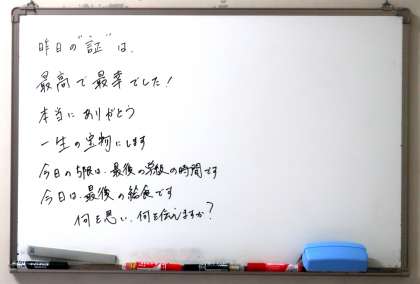 昨日の"証"は、
最高で最幸でした!
本当にありがとう
一生の宝物にします
今日の5限は、最後の学級の時間です
今日は、最後の給食です
何を思い、何を伝えますか?